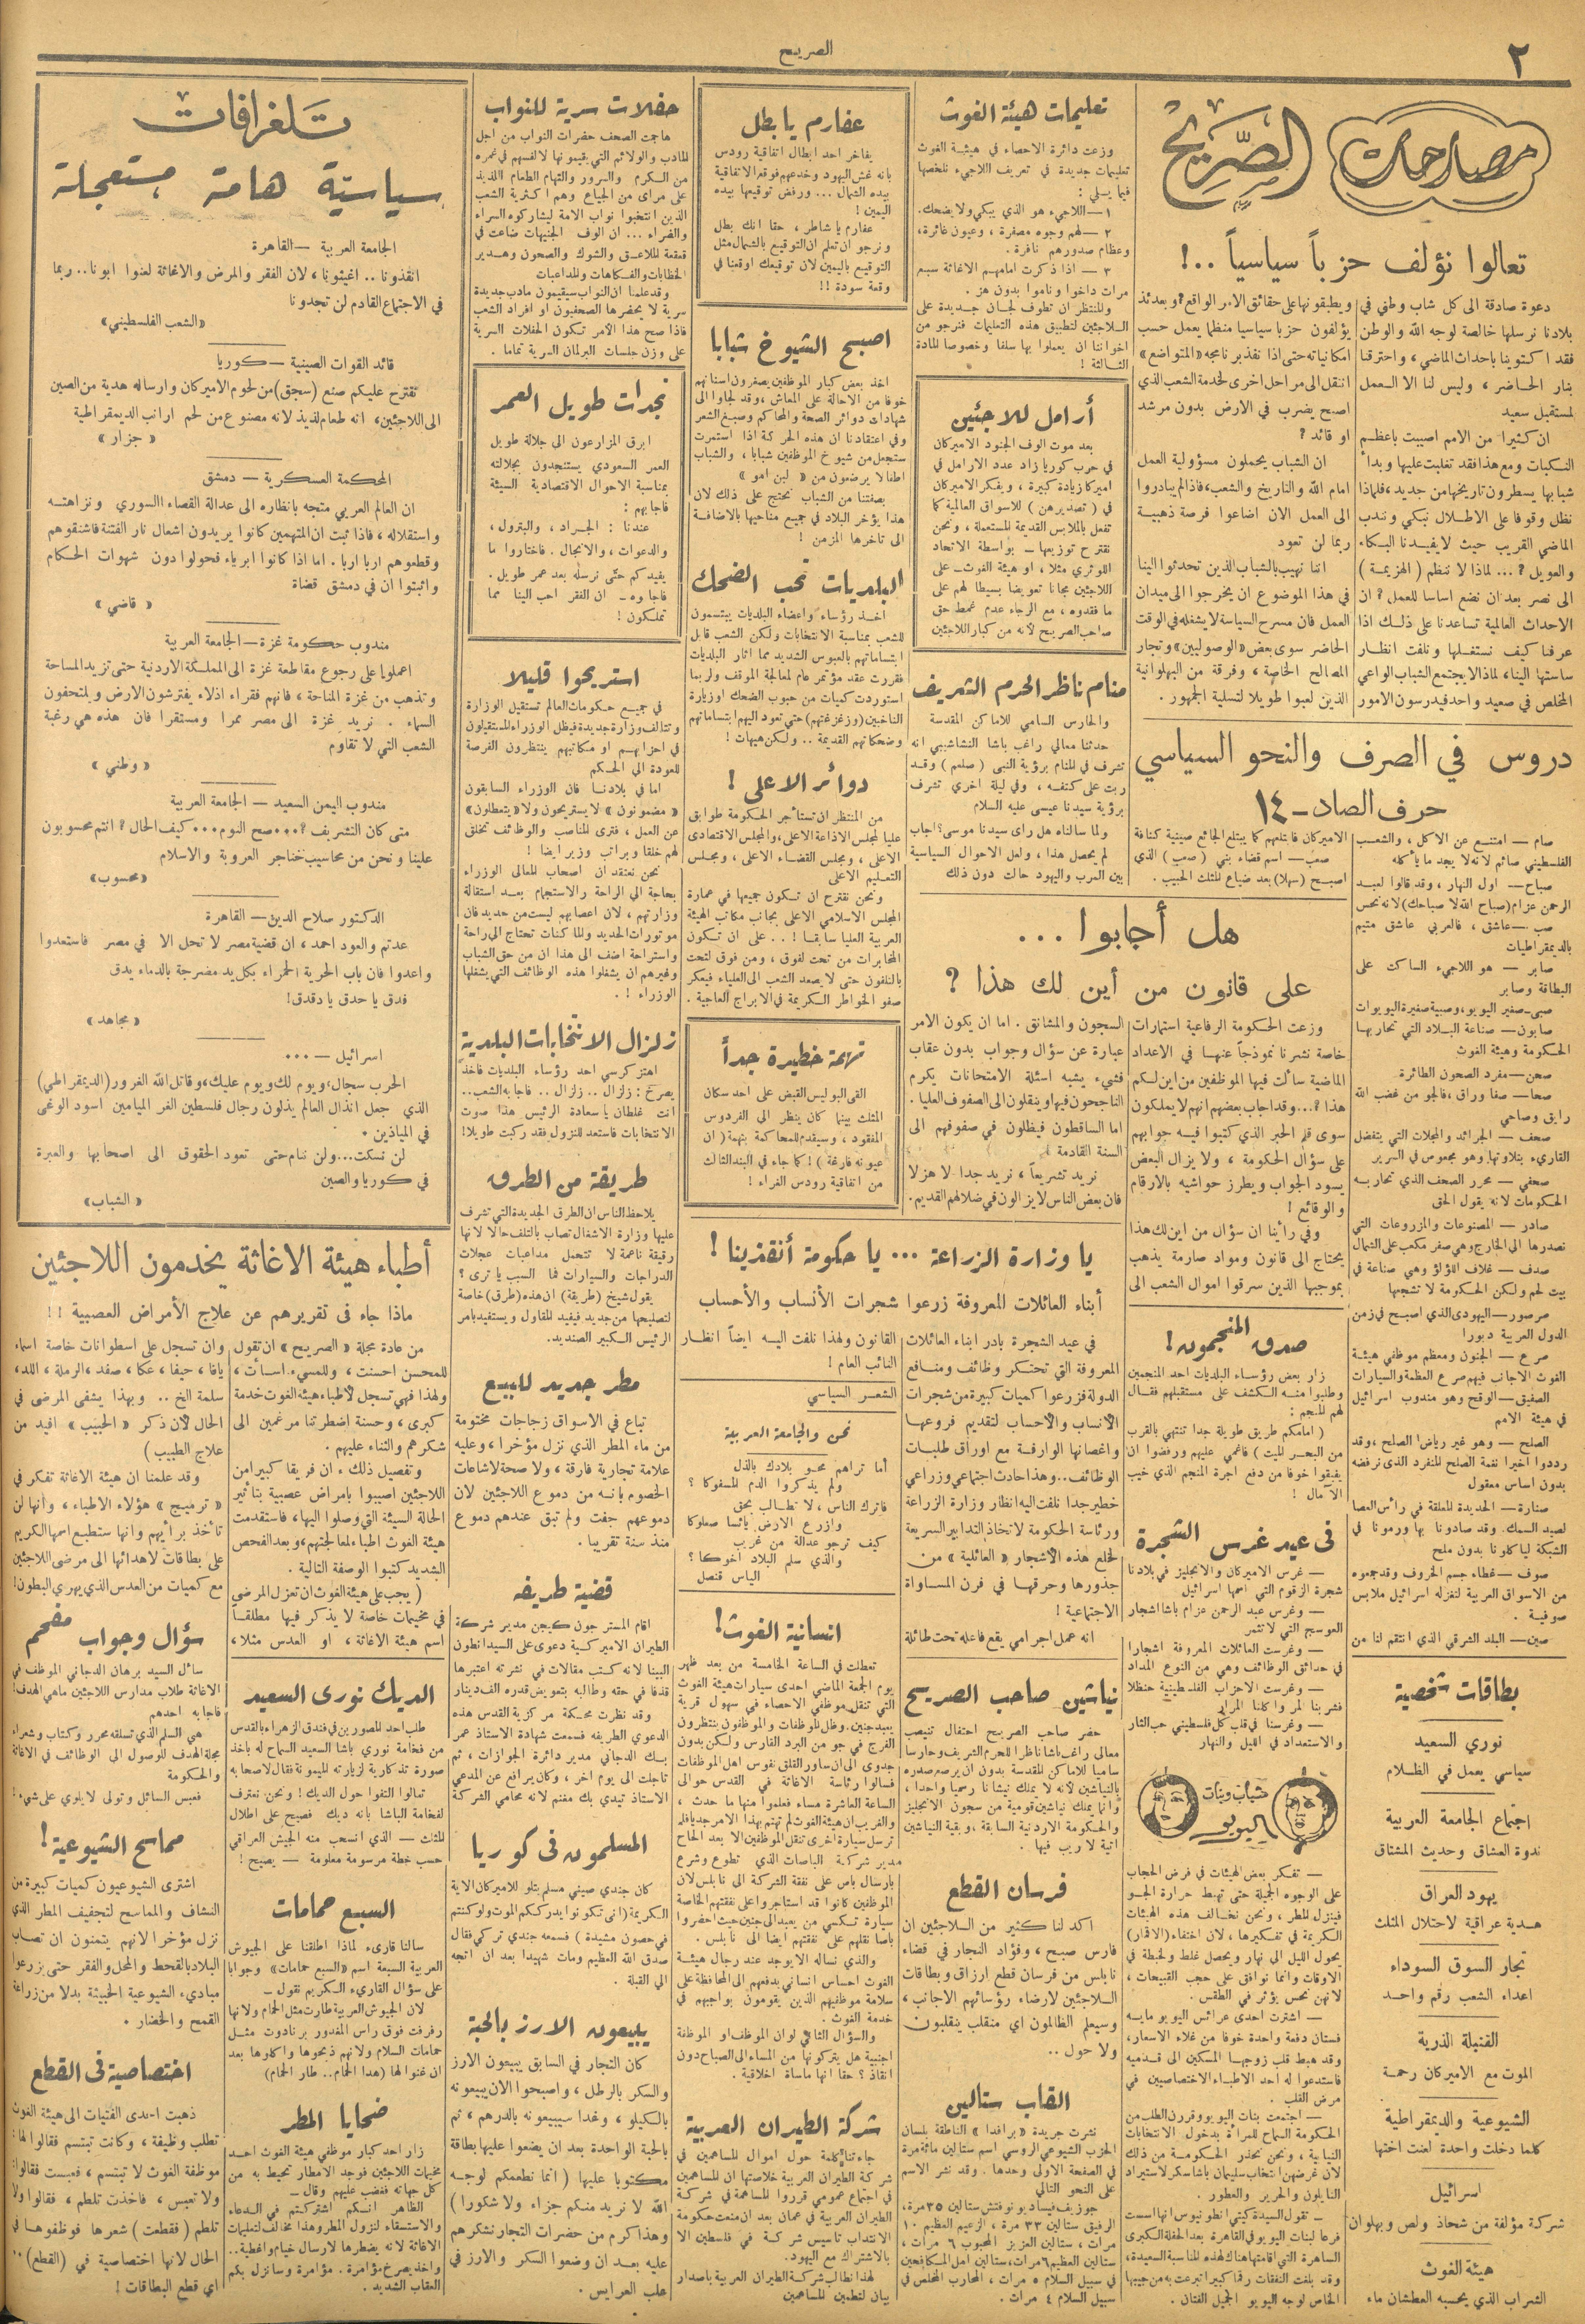 ٢
الصريح
مصارحات الصريح
تعالوا نؤلف حزباً سياسياً ..!
دعوة صادقة الى كل شاب وطني في
بلادنا نرسلها خالصة لوجه الله والوطن
فقد اكتوينا باحداث الماضي، واحترقنا
بنار الحاضر، وليس لنا الا العمل
لمستقبل سعيد
ان كثيرا من الامم اصيبت باعظم
النكبات ومع هذا فقد تغلبت عليها وبدأ
شبابها يسطرون تاريخها من جديد، فلماذا
نظل وقوفا على الاطلال نبكي ونندب
الماضي القريب حيث لا يفيدنا البكاء
والعويل؟ ... لماذا لا ننظم (الهزيمة)
الى نصر بعد ان نضع اساسا للعمل؟ ان
الاحداث العالمية تساعدنا على ذلك اذا
عرفنا كيف نستغلها ونلفت انظار
ساستها الينا، لماذا لا يجتمع الشباب الواعي
المخلص في صعيد واحد فيدرسون الامور
ويطبقونها على حقائق الامر الواقع؟ وبعدئذ
يؤلفون حزبا سياسيا منظما يعمل حسب
امكانياته حتى اذا نفذ برنامجه «المتواضع»
انتقل الى مراحل اخرى لخدمة الشعب الذي
اصبح يضرب في الارض بدون مرشد
او قائد؟
ان الشباب يحملون مسؤولية العمل
امام الله والتاريخ والشعب، فاذا لم يبادروا
الى العمل الان اضاعوا فرصة ذهبية
ربما لن تعود
اننا نهيب بالشباب الذين تحدثوا الينا
في هذا الموضوع ان يخرجوا الى ميدان
العمل فان مسرح السياسة لا يشغله في الوقت
الحاضر سوى بعض «الوصوليين» وتجار
المصالح الخاصة، وفرقة من البهلوانية
الذين لعبوا طويلا لتسلية الجمهور.
دروس في الصرف والنحو السياسي
حرف الصاد - ١٤
صام — امتنع عن الاكل، والشعب
الفلسطيني صائم لانه لا يجد ما يأكله
صباح — اول النهار، وقد قالوا لعبد
الرحمن عزام (صباح الله لا صباحك) لانه نحس
صب — عاشق، فالعربي عاشق متيم
بالديمقراطيات
صابر — هو اللاجيء الساكت على
البطاقة وصابر
صبي — صغير اليويو، وصبية صغيرة اليويوات
صابون — صناعة البلاد التي تحاربها
الحكومة وهيئة الغوث
صحن — مفرد الصحون الطائرة
صحا — صفا وراق، فالجو من غضب الله
رايق وصاحي
صحف — الجرائد والمجلات التي يتفضل
القاريء بتلاوتها وهو مجعوص في السرير
صحفي — محرر الصحف الذي تحاربه
الحكومات لانه يقول الحق
صادر — المصنوعات والمزروعات التي
نصدرها الى الخارج وهي صفر مكعب على الشمال
صدف — غلاف اللؤلؤ وهي صناعة في
بيت لحم ولكن الحكومة لا تشجعها
صرصور — اليهودي الذي اصبح في زمن
الدول العربية دبورا
صرع — الجنون ومعظم موظفي هيئة
الغوث الاجانب فيهم صرع العظمة والسيارات
الصفيق — الوقح وهو مندوب اسرائيل
في هيئة الامم
الصلح — وهو غير رياض! الصلح، وقد
رددوا اخيرا نغمة الصلح المنفرد الذي نرفضه
بدون اساس معقول
صنارة — الحديدة المعلقة في رأس العصا
لصيد السمك. وقد صادونا بها ورمونا في
الشبكة لياكلونا بدون ملح
صوف — غطاء جسم الخروف وقد جمعوه
من الاسواق العربية لتغزله اسرائيل ملابس
صوفية.
صين — البلد الشرقي الذي انتقم لنا من
الاميركان فابتلعهم كما يبتلع الجائع صينية كنافة
صعب — اسم قضاء بني (صعب) الذي
اصبح (سهلا) بعد ضياع المثلث الحبيب.
بطاقات شخصية
نوري السعيد
سياسي يعمل في الظلام
اجتماع الجامعة العربية
ندوة العشاق وحديث المشتاق
يهود العراق
هدية عراقية لاحتلال المثلث
تجار السوق السوداء
اعداء الشعب رقم واحد
القنبلة الذرية
الموت مع الاميركان رحمة
الشيوعية والديمقراطية
كلما دخلت واحدة لعنت اختها
اسرائيل
شركة مؤلفة من شحاذ ولص وبهلوان
هيئة الغوث
الشراب الذي يحسبه العطشان ماء
تعليمات هيئة الغوث
وزعت دائرة الاحصاء في هيئة الغوث
تعليمات جديدة في تعريف اللاجيء نلخصها
فيما يلي:
١ — اللاجيء هو الذي يبكي ولا يضحك.
٢ — لهم وجوه مصفرة، وعيون غائرة،
وعظام صدورهم نافرة.
٣ — اذا ذكرت امامهم الاغاثة سبع
مرات داخوا وناموا بدون هز.
والمنتظر ان تطوف لجان جديدة على
اللاجئين لتطبيق هذه التعليمات فنرجو من
اخواننا ان يعملوا بها سلفا وخصوصا المادة
الثالثة!
أرامل للاجئين
بعد موت الوف الجنود الاميركان
في حرب كوريا زاد عدد الارامل في
اميركا زيادة كبيرة، ويفكر الاميركان
في (تصديرهن) للاسواق العالمية كما
تفعل بالملابس القديمة المستعملة، ونحن
نقترح توزيعها — بواسطة الاتحاد
اللوثري مثلا، او هيئة الغوث — على
اللاجئين مجانا تعويضا بسيطا لهم على
ما فقدوه، مع الرجاء عدم غمط حق
صاحب الصريح لانه من كبار اللاجئين
منام ناظر الحرم الشريف
والحارس السامي للاماكن المقدسة
حدثنا معالي راغب باشا النشاشيبي انه
تشرف في المنام برؤية النبي (صلعم) وقد
ربت على كتفه، وفي ليلة اخرى تشرف
برؤية سيدنا عيسى عليه السلام
ولما سالناه هل رأى سيدنا موسى؟ اجاب
لم يحصل هذا، ولعل الاحوال السياسية
بين العرب واليهود حالت دون ذلك
هل أجابوا ...
على قانون من أين لك هذا؟
وزعت الحكومة الرفاعية استمارات
خاصة نشرنا نموذجاً عنها في الاعداد
الماضية سألت فيها الموظفين من اين لكم
هذا؟... وقد اجاب بعضهم انهم لا يملكون
سوى قلم الحبر الذي كتبوا فيه جوابهم
على سؤال الحكومة، ولا يزال البعض
يسود الجواب ويطرز حواشيه بالارقام
والوقائع!
وفي رأينا ان سؤال من اين لك هذا
يحتاج الى قانون ومواد صارمة يذهب
بموجبها الذين سرقوا اموال الشعب الى
السجون والمشانق. اما ان يكون الامر
عبارة عن سؤال وجواب بدون عقاب
فشيء يشبه اسئلة الامتحانات يكرم
الناجحون فيها وينقلون الى الصفوف العليا.
اما الساقطون فيظلون في صفوفهم الى
السنة القادمة
نريد تشريعاً، نريد جدا لا هزلا
فان بعض الناس لا يزالون في ضلالهم القديم.
صدق المنجمون!
زار بعض رؤساء البلديات احد المنجمين
وطلبوا منه الكشف على مستقبلهم فقال
لهم المنجم:
(امامكم طريق طويلة جدا تنتهي بالقرب
من البحر الميت) فاغمي عليهم ورفضوا ان
يفيقوا خوفا من دفع اجرة المنجم الذي خيب
الآمال!
في عيد غرس الشجرة
— غرس الاميركان والانجليز في بلادنا
شجرة الزقوم التي اسمها اسرائيل
— وغرس عبد الرحمن عزام باشا اشجار
العوسج التي لا تثمر
— وغرست العائلات المعروفة اشجارا
في حدائق الوظائف وهي من النوع المداد
— وغرست الاحزاب الفلسطينية حنظلا
فشربنا المر واكلنا المرار
— وغرسنا في قلب كل فلسطيني حب الثار
والاستعداد في الليل والنهار
شباب وبنات اليويو
— تفكر بعض الهيئات في فرض الحجاب
على الوجوه الجميلة حتى تهبط حرارة الجو
فينزل المطر، ونحن نخالف هذه الهيئات
الكريمة في تفكيرها، لان اختفاء (الاقمار)
يحول الليل الى نهار ويحصل غلط ولخبطة في
الاوقات وانما نوافق على حجب القبيحات،
لانهن نحس يؤثر في الطقس.
— اشترت احدى عرائس اليويو مايسه
فستان دفعة واحدة خوفا من غلاء الاسعار،
وقد هبط قلب زوجها المسكين الى قدميه
فاستدعوا له احد الاطباء الاختصاصيين في
مرض القلب.
— اجتمعت بنات اليويو وقررن الطلب من
الحكومة السماح للمرأة بدخول الانتخابات
النيابية، ونحن نحذر الحكومة من ذلك
لان غرضهن انتخاب سليمان باشا سكر لاستيراد
النايلون والحرير والعطور.
— تقول السيدة كيتي انطونيوس انها اسست
فرعا لبنات اليويو في القاهرة بعد الحفلة الكبرى
الساهرة التي اقامتها هناك لهذه المناسبة السعيدة،
وقد بلغت النفقات رقما كبيرا تبرعت به من جيبها
الخاص لوجه اليويو الجميل الفتان.
عفارم يا بطل
يفاخر احد ابطال اتفاقية رودس
بانه غش اليهود وخدعهم فوقع الاتفاقية
بيده الشمال ... ورفض توقيعها بيده
اليمين!
عفارم يا شاطر، حقا انك بطل
ونرجو ان تعلم ان التوقيع بالشمال مثل
التوقيع باليمين لان توقيعك اوقعنا في
وقعة سودة!!
اصبح الشيوخ شبابا
اخذ بعض كبار الموظفين يصغرون اسنانهم
خوفا من الاحالة على المعاش، وقد لجاوا الى
شهادات دوائر الصحة والمحاكم وصبغ الشعر
وفي اعتقادنا ان هذه الحركة اذا استمرت
ستجعل من شيوخ الموظفين شبابا، والشباب
اطفالا يرضعون من «لبن امو»
بصفتنا من الشباب نحتج على ذلك لان
هذا يؤخر البلاد في جميع مناحيها بالاضافة
الى تاخرها المزمن!
البلديات تحب الضحك
اخذ رؤساء واعضاء البلديات يبتسمون
للشعب بمناسبة الانتخابات ولكن الشعب قابل
ابتساماتهم بالعبوس الشديد مما اثار البلديات
فقررت عقد مؤتمر عام لمعالجة الموقف ولربما
استوردت كميات من حبوب الضحك او زيارة
الناخبين (وزغزغتهم) حتى تعود اليهم ابتساماتهم
وضحكاتهم القديمة .. ولكن هيهات!
دوائر الاعلى!
من المنتظر ان تستأجر الحكومة طوابق
عليا لمجلس الاذاعة الاعلى، والمجلس الاقتصادي
الاعلى، ومجلس القضاء الاعلى، ومجلس
التعليم الاعلى
ونحن نقترح ان تكون جميعها في عمارة
المجلس الاسلامي الاعلى بجانب مكاتب الهيئة
العربية العليا سابقا! .. على ان تكون
المخابرات من تحت لفوق، ومن فوق لتحت
بالتلفون حتى لا يصعد الشعب الى العلياء فيعكر
صفو الخواطر الكريمة في الابراج العاجية.
تهمة خطيرة جداً
القى البوليس القبض على احد سكان
المثلث بينما كان ينظر الى الفردوس
المفقود، وسيقدم للمحاكمة بتهمة (ان
عيونه فارغة)! كما جاء في البند الثالث
من اتفاقية رودس الغراء!
يا وزارة الزراعة ... يا حكومة أنقذينا!
أبناء العائلات المعروفة زرعوا شجرات الأنساب والأحساب
في عيد الشجرة بادر ابناء العائلات
المعروفة التي تحتكر وظائف ومنافع
الدولة فزرعوا كميات كبيرة من شجرات
الانساب والاحساب لتقديم فروعها
واغصانها الوارفة مع اوراق طلبات
الوظائف.. وهذا حادث اجتماعي وزراعي
خطير جدا نلفت اليه انظار وزارة الزراعة
ورئاسة الحكومة لاتخاذ التدابير السريعة
لخلع هذه الاشجار «العائلية» من
جذورها وحرقها في فرن المساواة
الاجتماعية!
انه عمل اجرامي يقع فاعله تحت طائلة
القانون ولهذا نلفت اليه ايضاً انظار
النائب العام!
الشعر السياسي
نحن والجامعة العربية
أما تراهم محو بلادك بالذل
ولم يذكروا الدم المسفوكا؟
فاترك الناس، لا تطالب بحق
وازرع الارض يائسا صعلوكا
كيف ترجو عدالة من غريب
والذي سلم البلاد اخوكا؟
الياس قنصل
انسانية الغوث!
تعطلت في الساعة الخامسة من بعد ظهر
يوم الجمعة الماضي احدى سيارات هيئة الغوث
التي تنقل موظفي الاحصاء في سهول قرية
يعبد جنين. وظل الموظفات والموظفون ينتظرون
الفرج في جو من البرد القارس ولكن بدون
جدوى الى ان ساور القلق نفوس اهل الموظفات
فسالوا رئاسة الاغاثة في القدس حوالى
الساعة العاشرة مساء فعلموا منها ما حدث،
والغريب ان هيئة الغوث لم تهتم بهذا الامر جديا فلم
ترسل سيارة اخرى تنقل الموظفين الا بعد الحاح
مدير شركة الباصات الذي تطوع وشرع
بارسال باص على نفقة الشركة الى نابلس لان
الموظفين كانوا قد استاجروا على نفقتهم الخاصة
سيارة تكسي من يعبد الى جنين حيث احضروا
باصا نقلهم على نفقتهم ايضا الى نابلس.
والذي نساله الا يوجد عند رجال هيئة
الغوث احساس انساني يدفعهم الى المحافظة على
سلامة موظفيهم الذين يقومون بواجبهم في
خدمة الغوث.
والسؤال الثاني لو ان الموظف او الموظفة
اجنبية هل يتركونها من المساء الى الصباح دون
انقاذ؟ حقا انها ماساة اخلاقية.
شركة الطيران العربية
جاءتنا كلمة حول اموال المساهمين في
شركة الطيران العربية خلاصتها ان المساهمين
في اجتماع عمومي قرروا المساهمة في شركة
الطيران العربية في عمان بعد ان منعت حكومة
الانتداب تاسيس شركة في فلسطين الا
بالاشتراك مع اليهود.
لهذا نطالب شركة الطيران العربية باصدار
بيان لتطمين المساهمين
نياشين صاحب الصريح
حضر صاحب الصريح احتفال تنصيب
معالي راغب باشا ناظرا للحرم الشريف وحارسا
ساميا للاماكن المقدسة بدون ان يرصع صدره
بالنياشين لانه لا يملك نيشانا رسميا واحدا،
وانما يملك نياشين قومية من سجون الانجليز
والحكومة الاردنية السابقة، وبقية النياشين
اتية لا ريب فيها.
فرسان القطع
اكد لنا كثير من اللاجئين ان
فارس صبح، وفؤاد النجار في قضاء
نابلس من فرسان قطع ارزاق وبطاقات
اللاجئين لارضاء رؤسائهم الاجانب،
وسيعلم الظالمون اي منقلب ينقلبون
ولا حول ..
القاب ستالين
نشرت جريدة «برافدا» الناطقة بلسان
الحزب الشيوعي الروسي اسم ستالين مائة مرة
في الصفحة الاولى وحدها. وقد نشر الاسم
على النحو التالي
جوزيف فيساديونوفتش ستالين ٣٥ مرة،
الرفيق ستالين ٣٣ مرة، الزعيم العظيم ١٠
مرات، ستالين العزيز المحبوب ٦ مرات،
ستالين العظيم ٦ مرات، ستالين امل المكافحين
في سبيل السلام ٥ مرات، المحارب المخلص في
سبيل السلام ٤ مرات.
حفلات سرية للنواب
هاجمت الصحف حضرات النواب من اجل
المادب والولائم التي يقيمونها لانفسهم في غمره
من الكرم والسرور والتهام الطعام اللذيذ
على مراى من الجياع وهم اكثرية الشعب
الذين انتخبوا نواب الامة ليشاركوه السراء
والضراء ... ان الوف الجنيهات ضاعت في
قمقعة الملاعق والشوك والصحون وهدير
الخطابات والفكاهات والمداعبات
وقد علمنا ان النواب سيقيمون مادب جديدة
سرية لا يحضرها الصحفيون او افراد الشعب
فاذا صح هذا الامر تكون الحفلات السرية
على وزن جلسات البرلمان السرية تماما.
نجدات طويل العمر
ابرق المزارعون الى جلالة طويل
العمر السعودي يستنجدون بجلالته
بمناسبة الاحوال الاقتصادية السيئة
فاجابهم:
عندنا: الجراد، والبترول،
والدعوات، والانجال. فاختاروا ما
يفيدكم حتى نرسله بعد عمر طويل.
فاجاوه — ان الفقر احب الينا مما
تملكون!
استريحوا قليلا
في جميع حكومات العالم تستقيل الوزارة
وتتالف وزارة جديدة فيظل الوزراء المستقيلون
في احزابهم او مكاتبهم ينتظرون الفرصة
للعودة الى الحكم
اما في بلادنا فان الوزراء السابقون
«مضمونون» لا يستريحون ولا «يتعطلون»
عن العمل، فترى المناصب والوظائف تخلق
لهم خلقا وبراتب وزير ايضا!
نحن نعتقد ان اصحاب المعالي الوزراء
بحاجة الى الراحة والاستجمام بعد استقالة
وزارتهم، لان اعصابهم ليست من حديد فان
موتورات الحديد والماكنات تحتاج الى راحة
واستراحة اضف الى هذا ان من حق الشباب
وغيرهم ان يشغلوا هذه الوظائف التي يشغلها
الوزراء!.
زلزال الانتخابات البلدية
اهتز كرسي احد رؤساء البلديات فاخذ
يصرخ: زلزال .. زلزال .. فاجابه الشعب..
انت غلطان يا سعادة الرئيس هذا صوت
الانتخابات فاستعد للنزول فقد ركبت طويلا!
طريقة من الطرق
يلاحظ الناس ان الطرق الجديدة التي تشرف
عليها وزارة الاشغال تصاب بالتلف حالا لانها
رقيقة ناعمة لا تتحمل مداعبات عجلات
الدراجات والسيارات فما السبب يا ترى؟
يقول شيخ (طريقة) ان هذه (طرق) خاصة
لتصليحها من جديد فيفيد المقاول ويستفيد بامر
الرئيس الكبير الصنديد.
مطر جديد للبيع
تباع في الاسواق زجاجات مختومة
من ماء المطر الذي نزل مؤخرا، وعليه
علامة تجارية فارقة، ولا صحة لاشاعات
الخصوم بانه من دموع اللاجئين لان
دموعهم جفت ولم تبق عندهم دموع
منذ سنة تقريبا.
قضية طريفه
اقام المستر جون كيجن مدير شركة
الطيران الاميركية دعوى على السيد انطون
البينا لانه كتب مقالات في نشرته اعتبرها
قذفا في حقه وطالبه بتعويض قدره الف دينار
وقد نظرت محكمة مركزية القدس هذه
الدعوى الطريفه فسمعت شهادة الاستاذ عمر
بك الدجاني مدير دائرة الجوازات، ثم
تاجلت الى يوم اخر، وكان يرافع عن المدعي
الاستاذ تيدي بك مغنم لانه محامي الشركة
المسلمون في كوريا
كان جندي صيني مسلم يتلو للاميركان الاية
الكريمة (انى تكونوا يدرككم الموت ولو كنتم
في حصون مشيدة) فسمعه جندي تركي فقال
صدق الله العظيم ومات شهيدا بعد ان اتجه
الى القبلة.
يبيعون الارز بالحبة
كان التجار في السابق يبيعون الارز
والسكر بالرطل، واصبحوا الان يبيعونه
بالكيلو، وغدا سيبيعونه بالدرهم، ثم
بالحبة الواحدة بعد ان يضعوا عليها بطاقة
مكتوبا عليها (انما نطعمكم لوجه
الله لا نريد منكم جزاء ولا شكورا)
وهذا كرم من حضرات التجار نشكرهم
عليه بعد ان وضعوا السكر والارز في
علب العرايس.
تلغرافات
سياسية هامة مستعجلة
الجامعة العربية — القاهرة
انقذونا .. اغيثونا، لان الفقر والمرض والاغاثة لعنوا ابونا.. ربما
في الاجتماع القادم لن تجدونا
«الشعب الفلسطيني»
قائد القوات الصينية — كوريا
نقترح عليكم صنع (سجق) من لحوم الاميركان وارساله هدية من الصين
الى اللاجئين، انه طعام لذيذ لانه مصنوع من لحم ارانب الديمقراطية
«جزار»
المحكمة العسكرية — دمشق
ان العالم العربي متجه بانظاره الى عدالة القضاء السوري ونزاهته
واستقلاله، فاذا ثبت ان المتهمين كانوا يريدون اشعال نار الفتنة فاشنقوهم
وقطعوهم اربا اربا. اما اذا كانوا ابرياء فحولوا دون شهوات الحكام
واثبتوا ان في دمشق قضاة
«قاضي»
مندوب حكومة غزة — الجامعة العربية
اعملوا على رجوع مقاطعة غزة الى المملكة الاردنية حتى تزيد المساحة
وتذهب من غزة المناحة، فانهم فقراء اذلاء يفترشون الارض ويلتحفون
السماء. نريد غزة الى مصر ممرا ومستقرا فان هذه هي رغبة
الشعب التي لا تقاوم
«وطني»
مندوب اليمن السعيد — الجامعة العربية
متى كان التشريف؟... صح النوم... كيف الحال؟ انتم محسوبون
علينا ونحن من محاسيب خناجر العروبة والاسلام
«محسوب»
الدكتور صلاح الدين — القاهرة
عدتم والعود احمد، ان قضية مصر لا تحل الا في مصر فاستعدوا
واعدوا فان باب الحرية الحمراء بكل يد مضرجة بالدماء يدق
فدق يا حدق يا دقدق!
«مجاهد»
اسرائيل — ...
الحرب سجال، ويوم لك ويوم عليك، وقاتل الله الغرور (الديمقراطي)
الذي جعل انذال العالم يذلون رجال فلسطين الغر الميامين اسود الوغى
في الميادين.
لن نسكت... ولن ننام حتى تعود الحقوق الى اصحابها والعبرة
في كوريا والصين
«الشباب»
أطباء هيئة الاغاثة يخدمون اللاجئين
ماذا جاء في تقريرهم عن علاج الأمراض العصبية!!
من عادة مجلة «الصريح» ان تقول
للمحسن احسنت، وللمسيء اسأت،
ولهذا فهي تسجل لاطباء هيئة الغوث خدمة
كبرى، وحسنة اضطرتنا مرغمين الى
شكرهم والثناء عليهم.
وتفصيل ذلك، ان فريقا كبيرا من
اللاجئين اصيبوا بامراض عصبية بتاثير
الحالة السيئة التي وصلوا اليها، فاستقدمت
هيئة الغوث اطباء لمعالجتهم، وبعد الفحص
الشديد كتبوا الوصفة التالية.
(يجب على هيئة الغوث ان تعزل المرضى
في مخيمات خاصة لا يذكر فيها مطلقا
اسم هيئة الاغاثة، او العدس مثلا،
وان تسجل على اسطوانات خاصة اسماء
يافا، حيفا، عكا، صفد، الرملة، اللد،
سلمة الخ .. وبهذا يشفى المرضى في
الحال لان ذكر «الحبيب» افيد من
علاج الطبيب)
وقد علمنا ان هيئة الاغاثة تفكر في
«ترميج» هؤلاء الاطباء، وانها لن
تأخذ برأيهم وانها ستطبع اسمها الكريم
على بطاقات لاهدائها الى مرضى اللاجئين
مع كميات من العدس الذي يهري البطون!
الديك نوري السعيد
طلب احد المصورين في فندق الزهراء بالقدس
من فخامة نوري باشا السعيد السماح له باخذ
صورة تذكارية لزيارته الميمونة فقال لاصحابه
تعالوا التفوا حول الديك! ونحن نعترف
لفخامة الباشا بانه ديك فصيح على اطلال
المثلث — الذي انسحب منه الجيش العراقي
حسب خطة مرسومة معلومة — يصيح!
السبع حمامات
سالنا قارىء لماذا اطلقنا على الجيوش
العربية السبعة اسم «السبع حمامات» وجوابا
على سؤال القاريء الكريم نقول —
لان الجيوش العربية طارت مثل الحمام ولانها
رفرفت فوق راس المغدور برنادوت مثل
حمامات السلام ولانهم ذبحوها واكلوها بعد
ان غنوا لها (هدا الحمام .. طار الحمام)
ضحايا المطر
زار احد كبار موظفي هيئة الغوث احد
مخيمات اللاجئين فوجد الامطار تحيط به من
كل جهاته فغضب عليهم وقال —
الظاهر انكم اشتركتم في الدعاء
والاستسقاء لنزول المطر وهذا مخالف لتعليمات
الاغاثة لانه يضطرها لارسال خيام واغطية..
واخذ يصرخ مؤامرة. مؤامرة وسانزل بكم
العقاب الشديد.
سؤال وجواب مفحم
سائل السيد برهان الدجاني الموظف في
الاغاثة طلاب مدارس اللاجئين ما هي الهدف؟
فاجابه احدهم
هي السلم الذي تسلقه محرر وكتاب وشعراء
مجلة الهدف للوصول الى الوظائف في الاغاثة
والحكومة
فعبس السائل وتولى لا يلوي على شيء!
مماسح الشيوعية!
اشترى الشيوعيون كميات كبيرة من
النشاف والمماسح لتجفيف المطر الذي
نزل مؤخرا لانهم يتمنون ان تصاب
البلاد بالقحط والمحل والفقر حتى يزرعوا
مبادىء الشيوعية الخبيثة بدلا من زراعة
القمح والخضار.
اختصاصية في القطع
ذهبت احدى الفتيات الى هيئة الغوث
تطلب وظيفة، وكانت تبتسم فقالوا لها:
موظفة الغوث لا تبتسم، فعبست فقالوا:
ولا تعبس، فاخذت تلطم، فقالوا ولا
تلطم (فقطعت) شعرها فوظفوها في
الحال لانها اختصاصية في (القطع)..
اي قطع البطاقات!